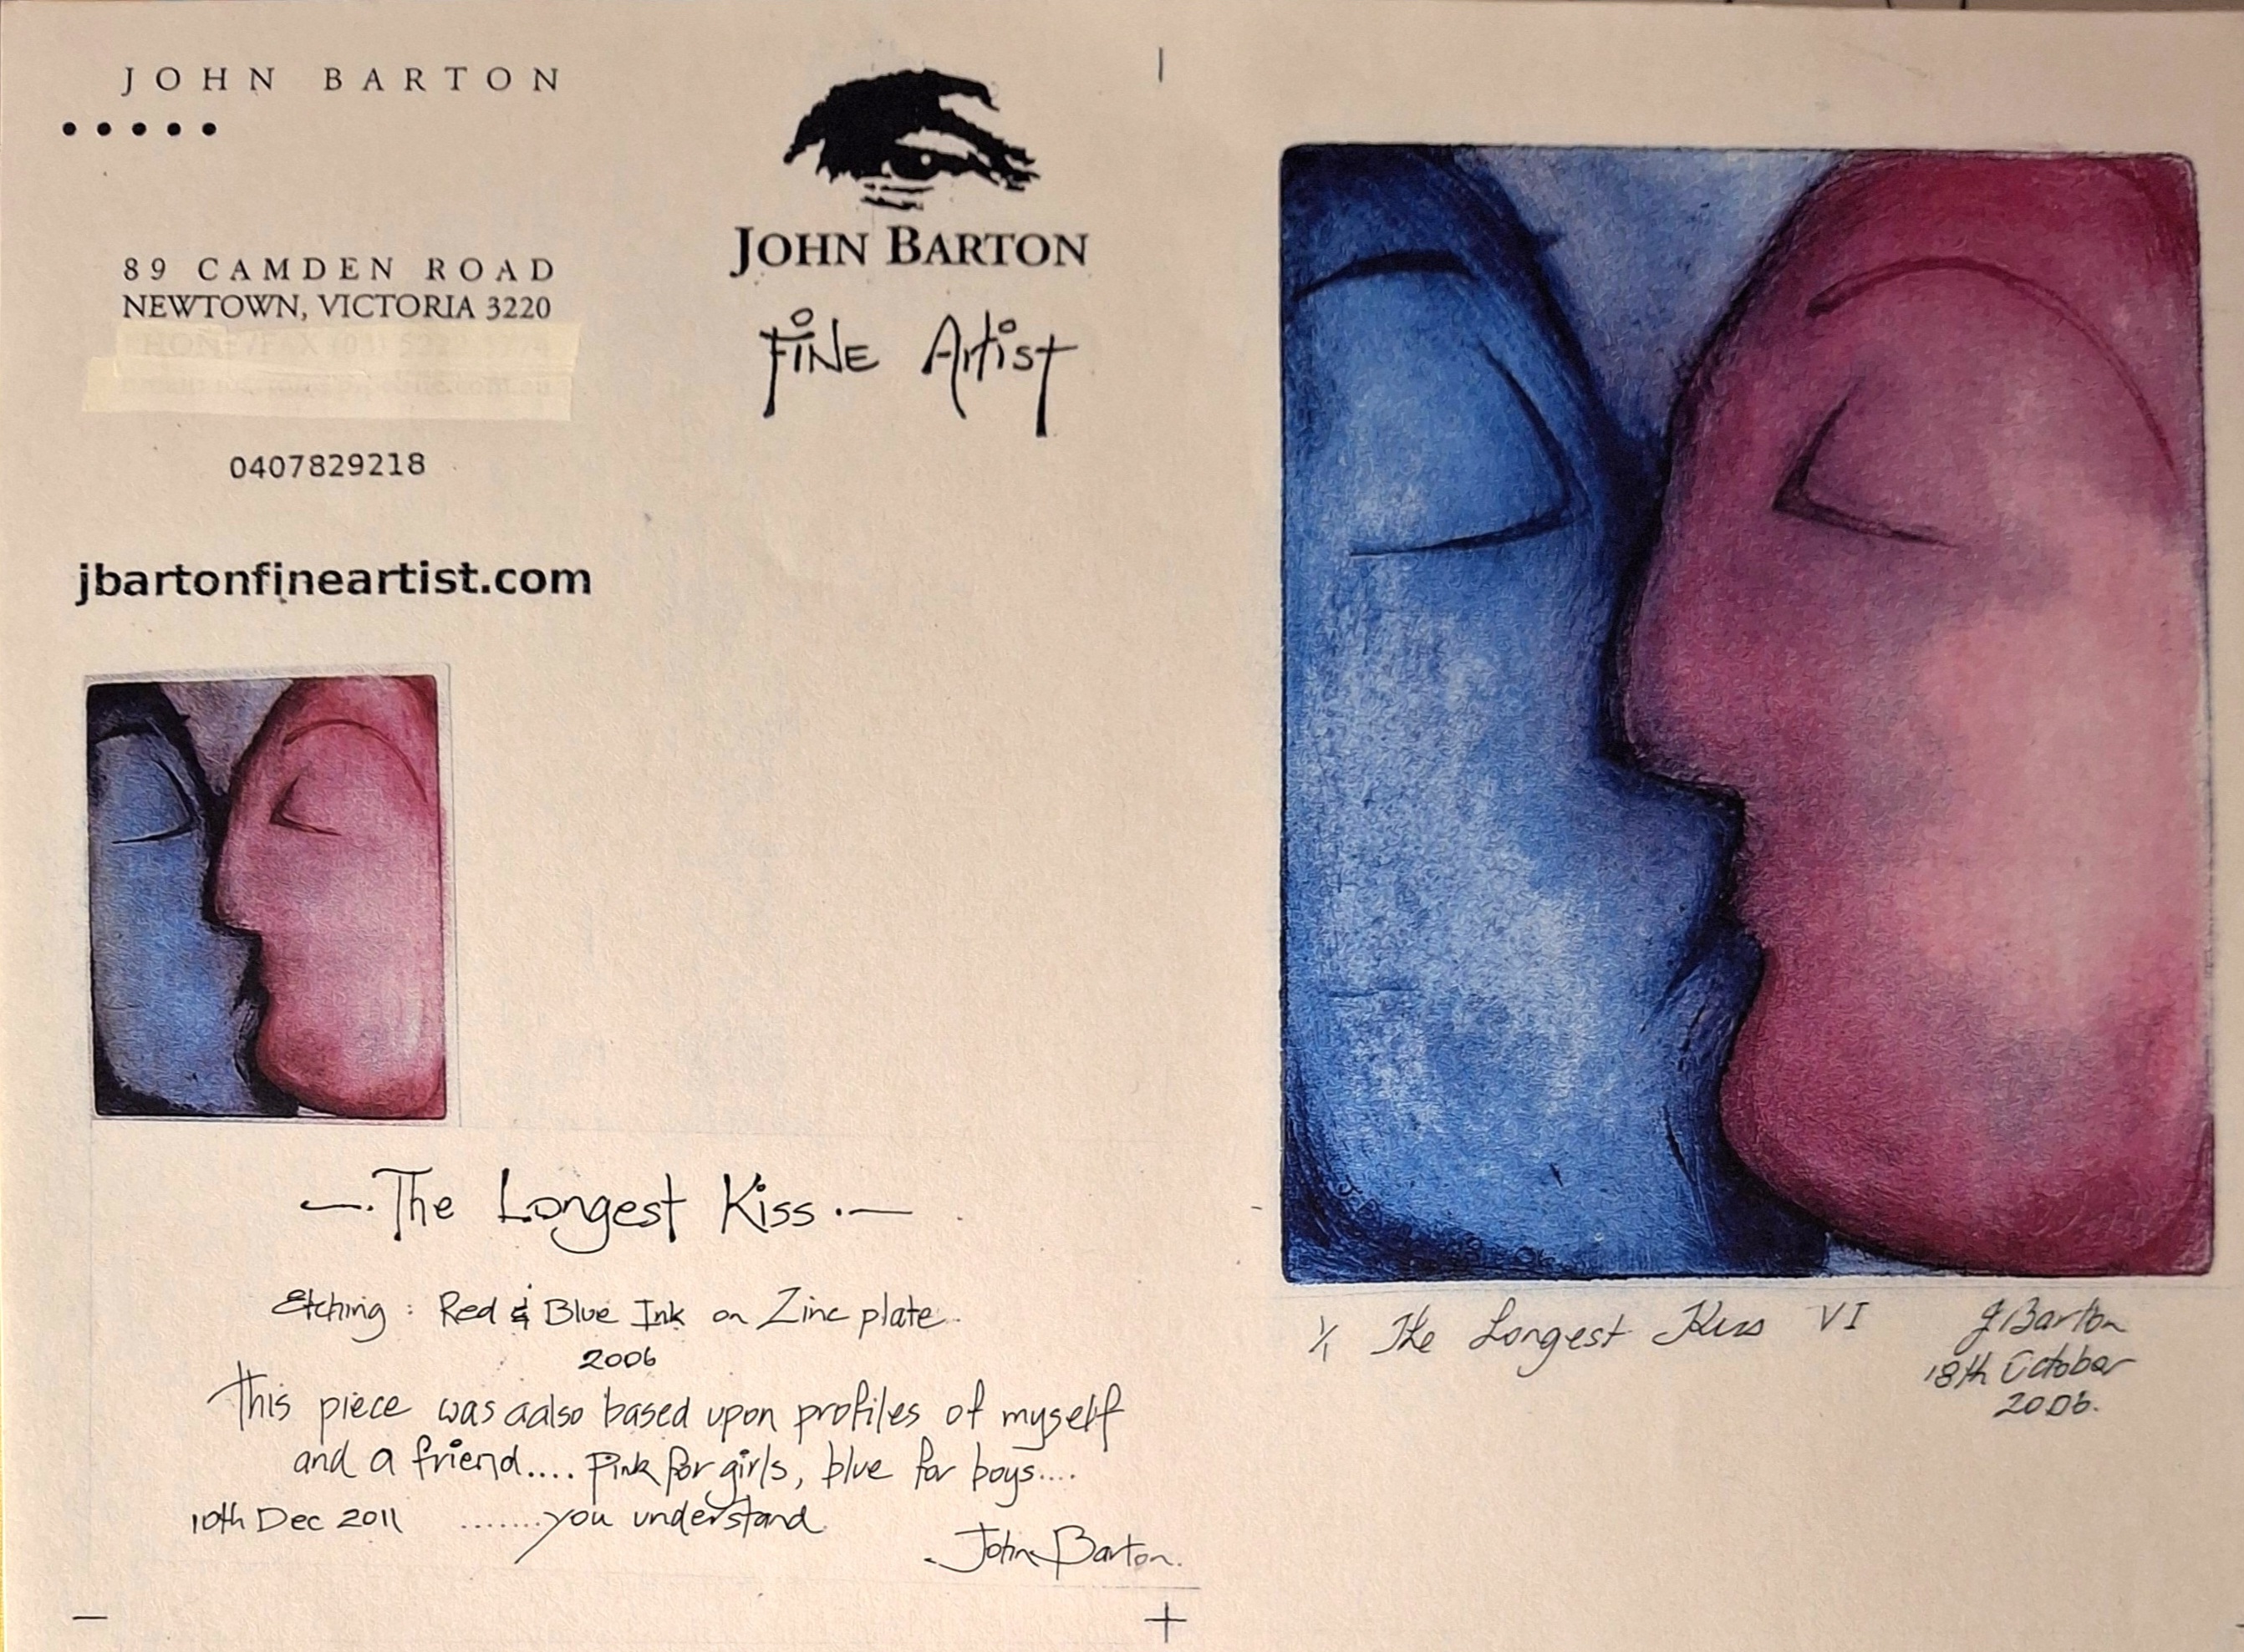 JOHN BARTON
89 CAMDEN ROAD
NEWTOWN, VICTORIA 3220
0407829218
jbartonfineartist.com
JOHN BARTON
FiNE Artist
The Longest Kiss
Etching : Red & Blue Ink on Zinc plate
2006
This piece was aalso based upon profiles of myself
and a friend.... pink for girls, blue for boys....
10th Dec 2011 .......you understand
John Barton.
1/1 The Longest Kiss VI J Barton
18th October
2006.